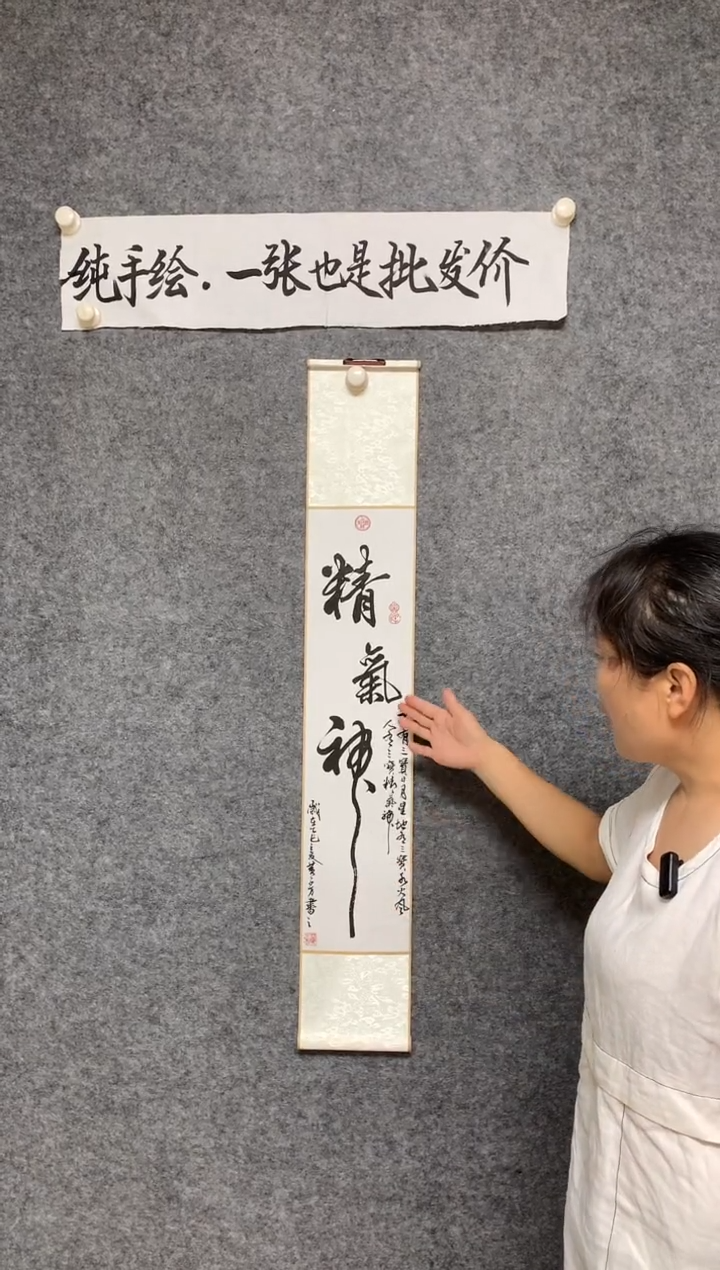 纯手绘.一张也是批发价
精氣神
有三寳日月星地有三寳水火风
人有三寳精氣神
歲在乙巳之夏
書之